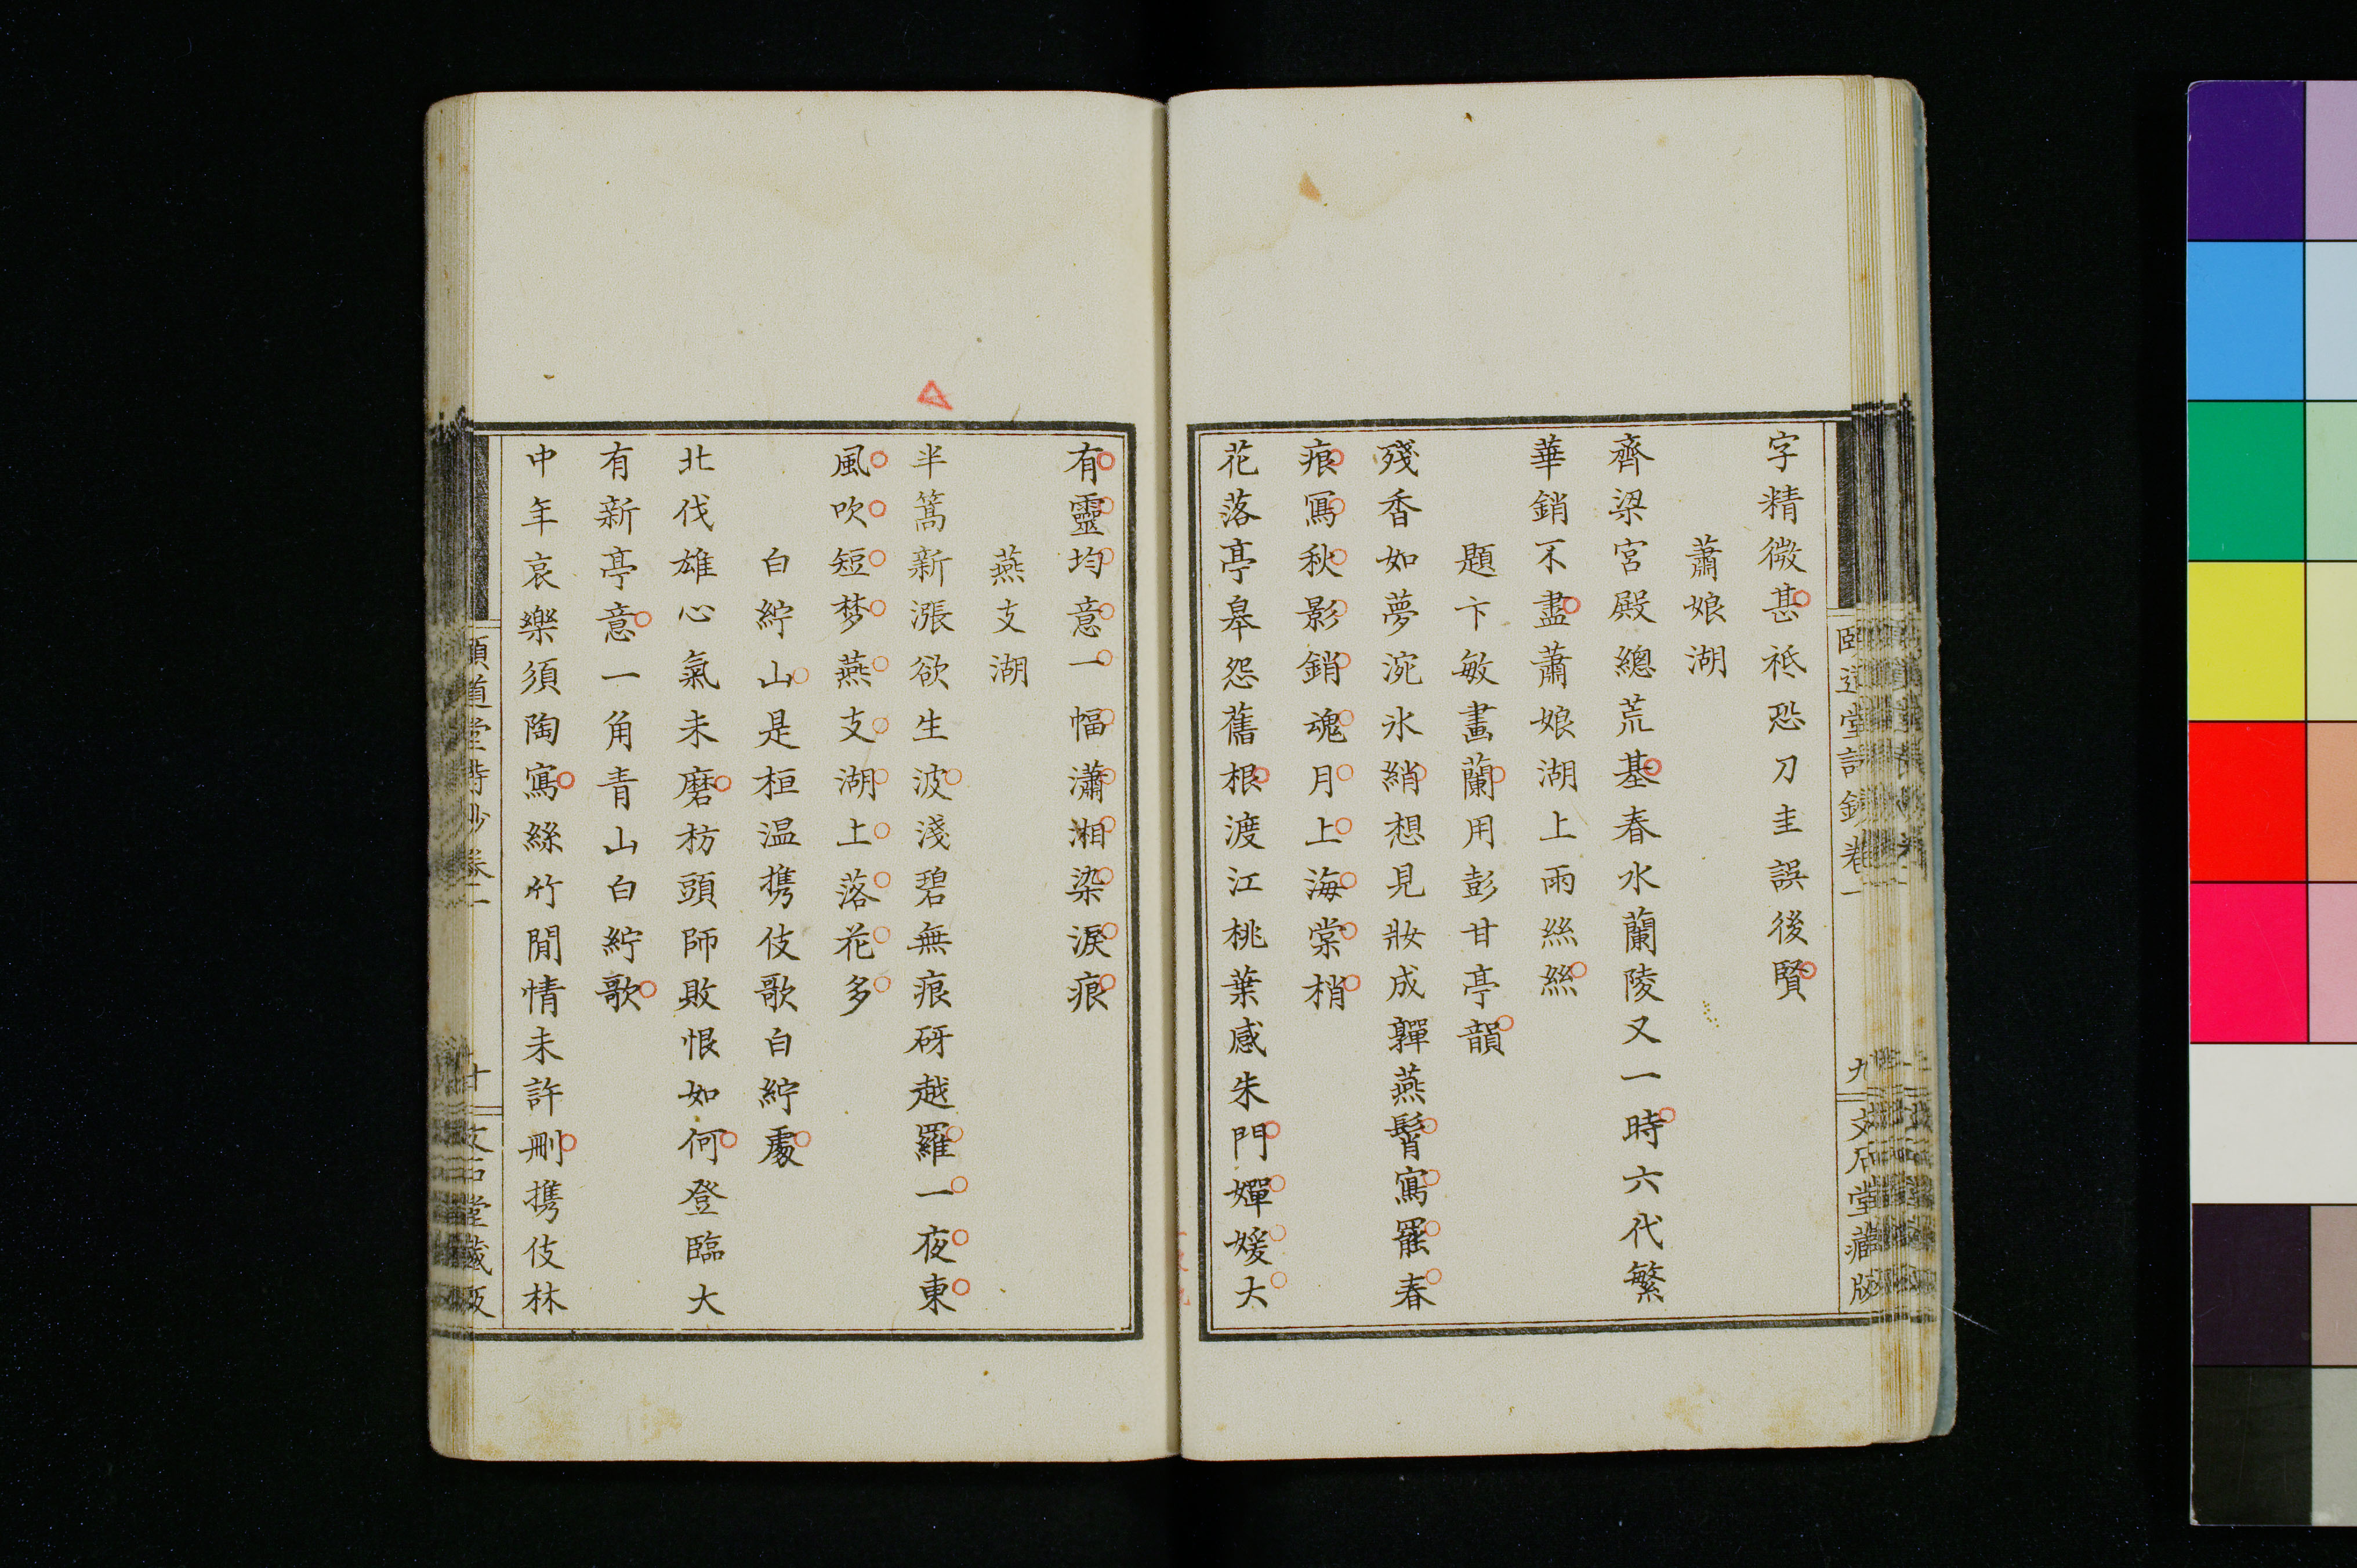 字精微甚祗恐刀圭誤後賢
蕭娘湖
齊梁宮殿總荒基春水蘭陵又一時六代繁
華銷不盡蕭娘湖上雨絲絲
題卞敏畫蘭用彭甘亭韻
殘香如夢涴氷綃想見妝成嚲燕髾寫罷春
痕寫秋影銷魂月上海棠梢
花落亭皋怨舊根渡江桃葉感朱門嬋媛大
有靈均意一幅瀟湘染淚痕
燕支湖
半篙新漲欲生波淺碧無痕砑越羅一夜東
風吹短梦燕支湖上落花多
白紵山是桓温攜伎歌白紵處
北伐雄心氣未磨枋頭師敗恨如何登臨大
有新亭意一角青山白紵歌
中年哀樂須陶寫絲竹閒情未許刪攜伎林
頤道堂詩鈔卷一
九
文石堂藏版
頤道堂詩鈔卷一
十
文石堂藏版